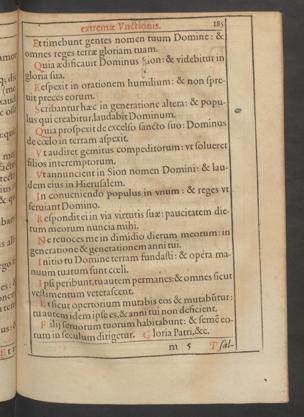 extremæ Vnctionis. 185
Et timebunt gentes nomen tuum Domine: &
omnes reges terræ gloriam tuam.
Quia ædificauit Dominus Sion: & videbitur in
gloria sua.
Respexit in orationem humilium: & non spre-
uit preces eorum.
Scribantur hæc in generatione altera: & popu-
lus qui creabitur, laudabit Dominum.
Quia prospexit de excelso sancto suo: Dominus
de cœlo in terram aspexit.
Vt audiret gemitus compeditorum: vt solueret
filios interemptorum.
Vt annuncient in Sion nomen Domini: & lau-
dem eius in Hierusalem.
In conueniendo populos in vnum: & reges vt
seruiant Domino.
Respondit ei in via virtutis suæ: paucitatem die-
rum meorum nuncia mihi.
Ne reuoces me in dimidio dierum meorum: in
generatione & generationem anni tui.
Initio tu Domine terram fundasti: & opera ma-
nuum tuarum sunt cœli.
Ipsi peribunt, tu autem permanes: & omnes sicut
vestimentum veterascent.
Et sicut opertorium mutabis eos & mutabūtur:
tu autem idem ipse es, & anni tui non deficient.
Filij seruorum tuorum habitabunt: & semē eo-
rum in seculum dirigetur. Gloria Patri, &c.
m 5 Psal-